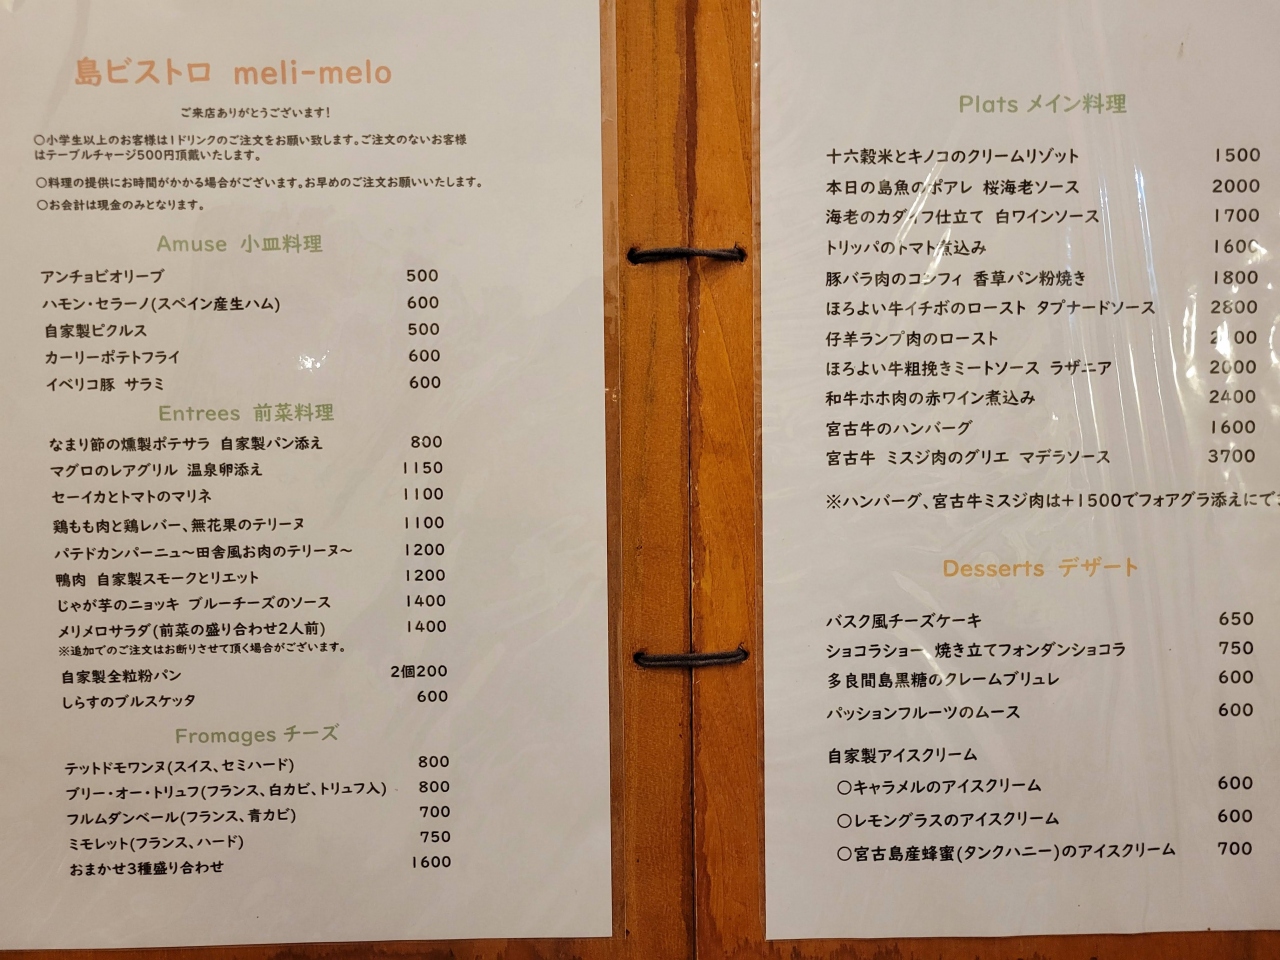 島ビストロ meli-melo
ご来店ありがとうございます!
○小学生以上のお客様は1ドリンクのご注文をお願い致します。ご注文のないお客様
はテーブルチャージ500円頂戴いたします。
○料理の提供にお時間がかかる場合がございます。お早めのご注文お願いいたします。
○お会計は現金のみとなります。
Amuse 小皿料理
アンチョビオリーブ 500
ハモン・セラーノ(スペイン産生ハム) 600
自家製ピクルス 500
カーリーポテトフライ 600
イベリコ豚 サラミ 600
Entrees 前菜料理
なまり節の燻製ポテサラ 自家製パン添え 800
マグロのレアグリル 温泉卵添え 1150
セーイカとトマトのマリネ 1100
鶏もも肉と鶏レバー、無花果のテリーヌ 1100
パテドカンパーニュ～田舎風お肉のテリーヌ～ 1200
鴨肉 自家製スモークとリエット 1200
じゃが芋のニョッキ ブルーチーズのソース 1400
メリメロサラダ(前菜の盛り合わせ2人前) 1400
※追加でのご注文はお断りさせて頂く場合がございます。
自家製全粒粉パン 2個200
しらすのブルスケッタ 600
Fromages チーズ
テットドモワンヌ(スイス、セミハード) 800
ブリー・オー・トリュフ(フランス、白カビ、トリュフ入) 800
フルムダンベール(フランス、青カビ) 700
ミモレット(フランス、ハード) 750
おまかせ3種盛り合わせ 1600
Plats メイン料理
十六穀米とキノコのクリームリゾット 1500
本日の島魚のポアレ 桜海老ソース 2000
海老のカダイフ仕立て 白ワインソース 1700
トリッパのトマト煮込み 1600
豚バラ肉のコンフィ 香草パン粉焼き 1800
ほろよい牛イチボのロースト タプナードソース 2800
仔羊ランプ肉のロースト
ほろよい牛粗挽きミートソース ラザニア 2000
和牛ホホ肉の赤ワイン煮込み 2400
宮古牛のハンバーグ 1600
宮古牛 ミスジ肉のグリエ マデラソース 3700
※ハンバーグ、宮古牛ミスジ肉は+1500でフォアグラ添えにでき
Desserts デザート
バスク風チーズケーキ 650
ショコラショー 焼き立てフォンダンショコラ 750
多良間島黒糖のクレームブリュレ 600
パッションフルーツのムース 600
自家製アイスクリーム
○キャラメルのアイスクリーム 600
○レモングラスのアイスクリーム 600
○宮古島産蜂蜜(タンクハニー)のアイスクリーム 700